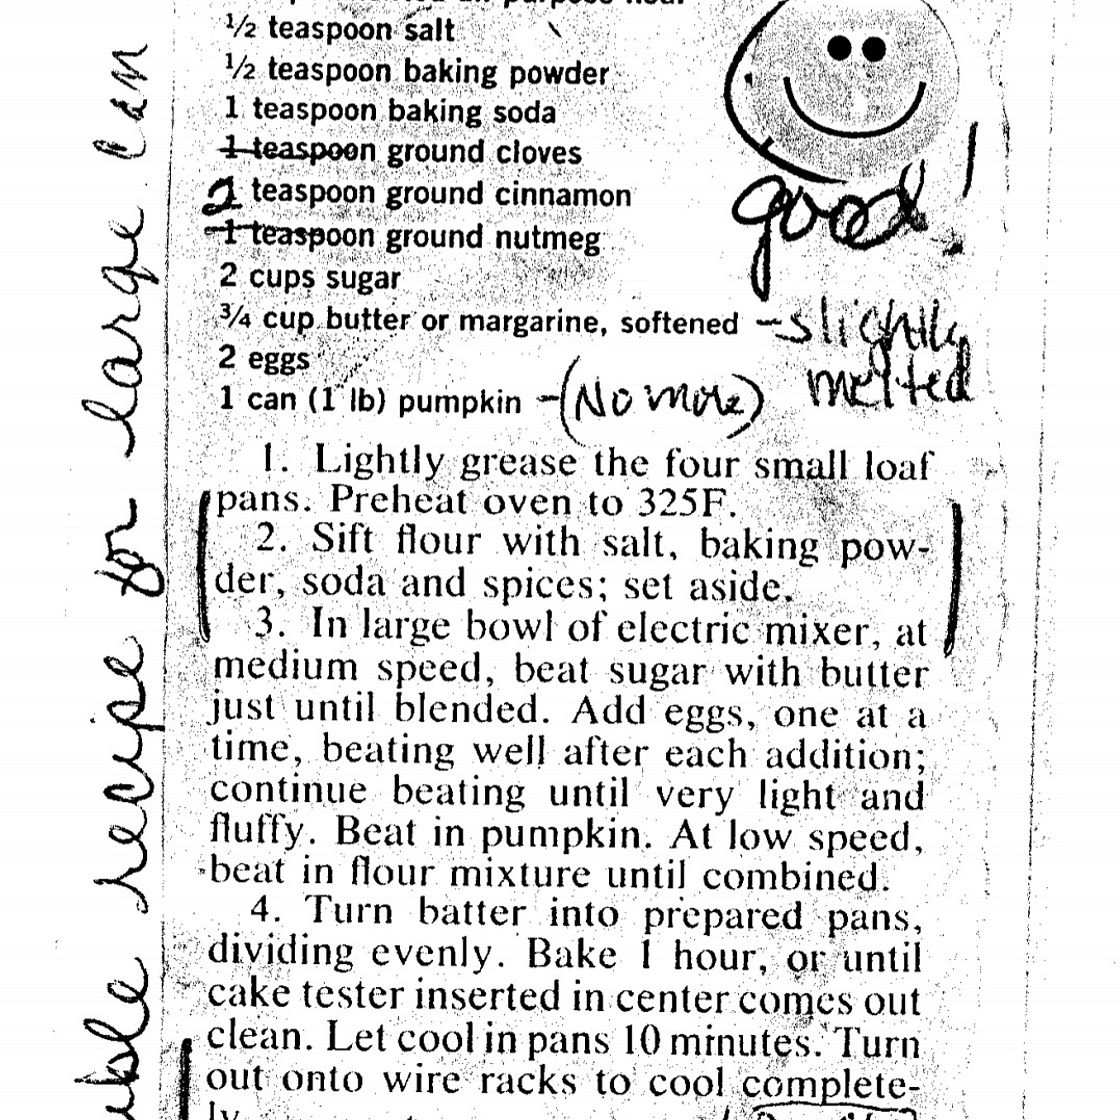 ½ teaspoon salt
½ teaspoon baking powder
1 teaspoon baking soda
1 teaspoon ground cloves
2 teaspoon ground cinnamon
1 teaspoon ground nutmeg
2 cups sugar
¾ cup butter or margarine, softened - slightly melted
2 eggs
1 can (1 lb) pumpkin - (No more)
good!
1. Lightly grease the four small loaf
pans. Preheat oven to 325F.
2. Sift flour with salt, baking pow-
der, soda and spices; set aside.
3. In large bowl of electric mixer, at
medium speed, beat sugar with butter
just until blended. Add eggs, one at a
time, beating well after each addition;
continue beating until very light and
fluffy. Beat in pumpkin. At low speed,
beat in flour mixture until combined.
4. Turn batter into prepared pans,
dividing evenly. Bake 1 hour, or until
cake tester inserted in center comes out
clean. Let cool in pans 10 minutes. Turn
out onto wire racks to cool complete-
ly
recipe for large can